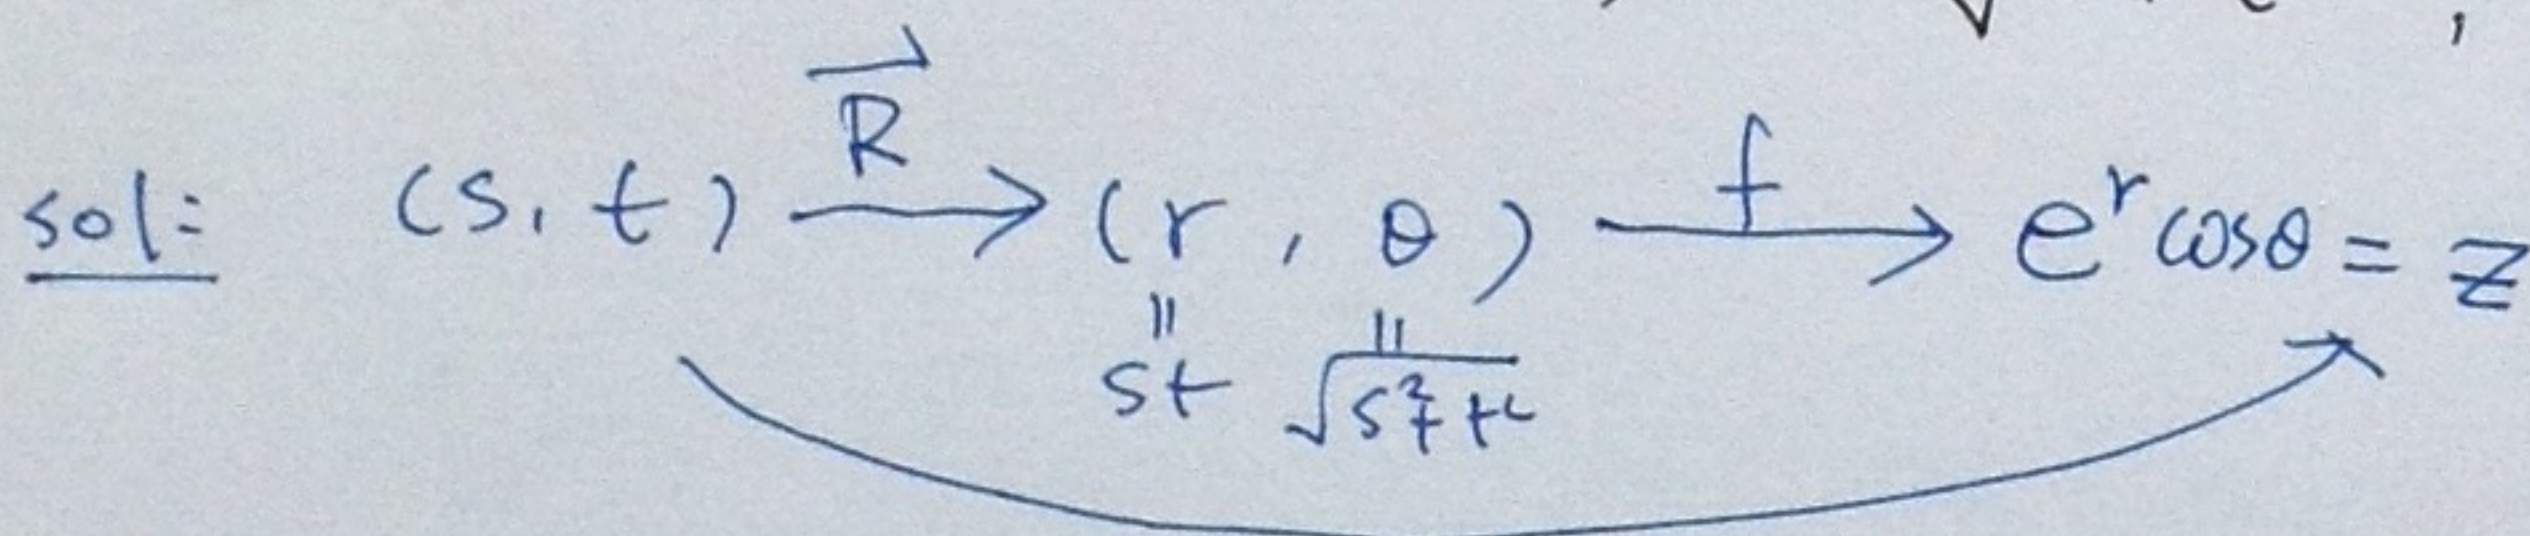 R⃗ f
sol: (s, t) ⟶ (r, θ) ⟶ e^r cosθ = z
" "
st √(s²+t²)